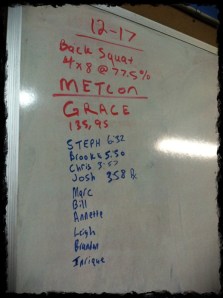 12-17
Back Squat
4x8 @ 77.5%
METCON
GRACE
135, 95
STEPH 6:32
Brooke 5:50
Chris 3:57
Josh 3:58
Marc
Bill
Annette
Leigh
Brandon
Enrique